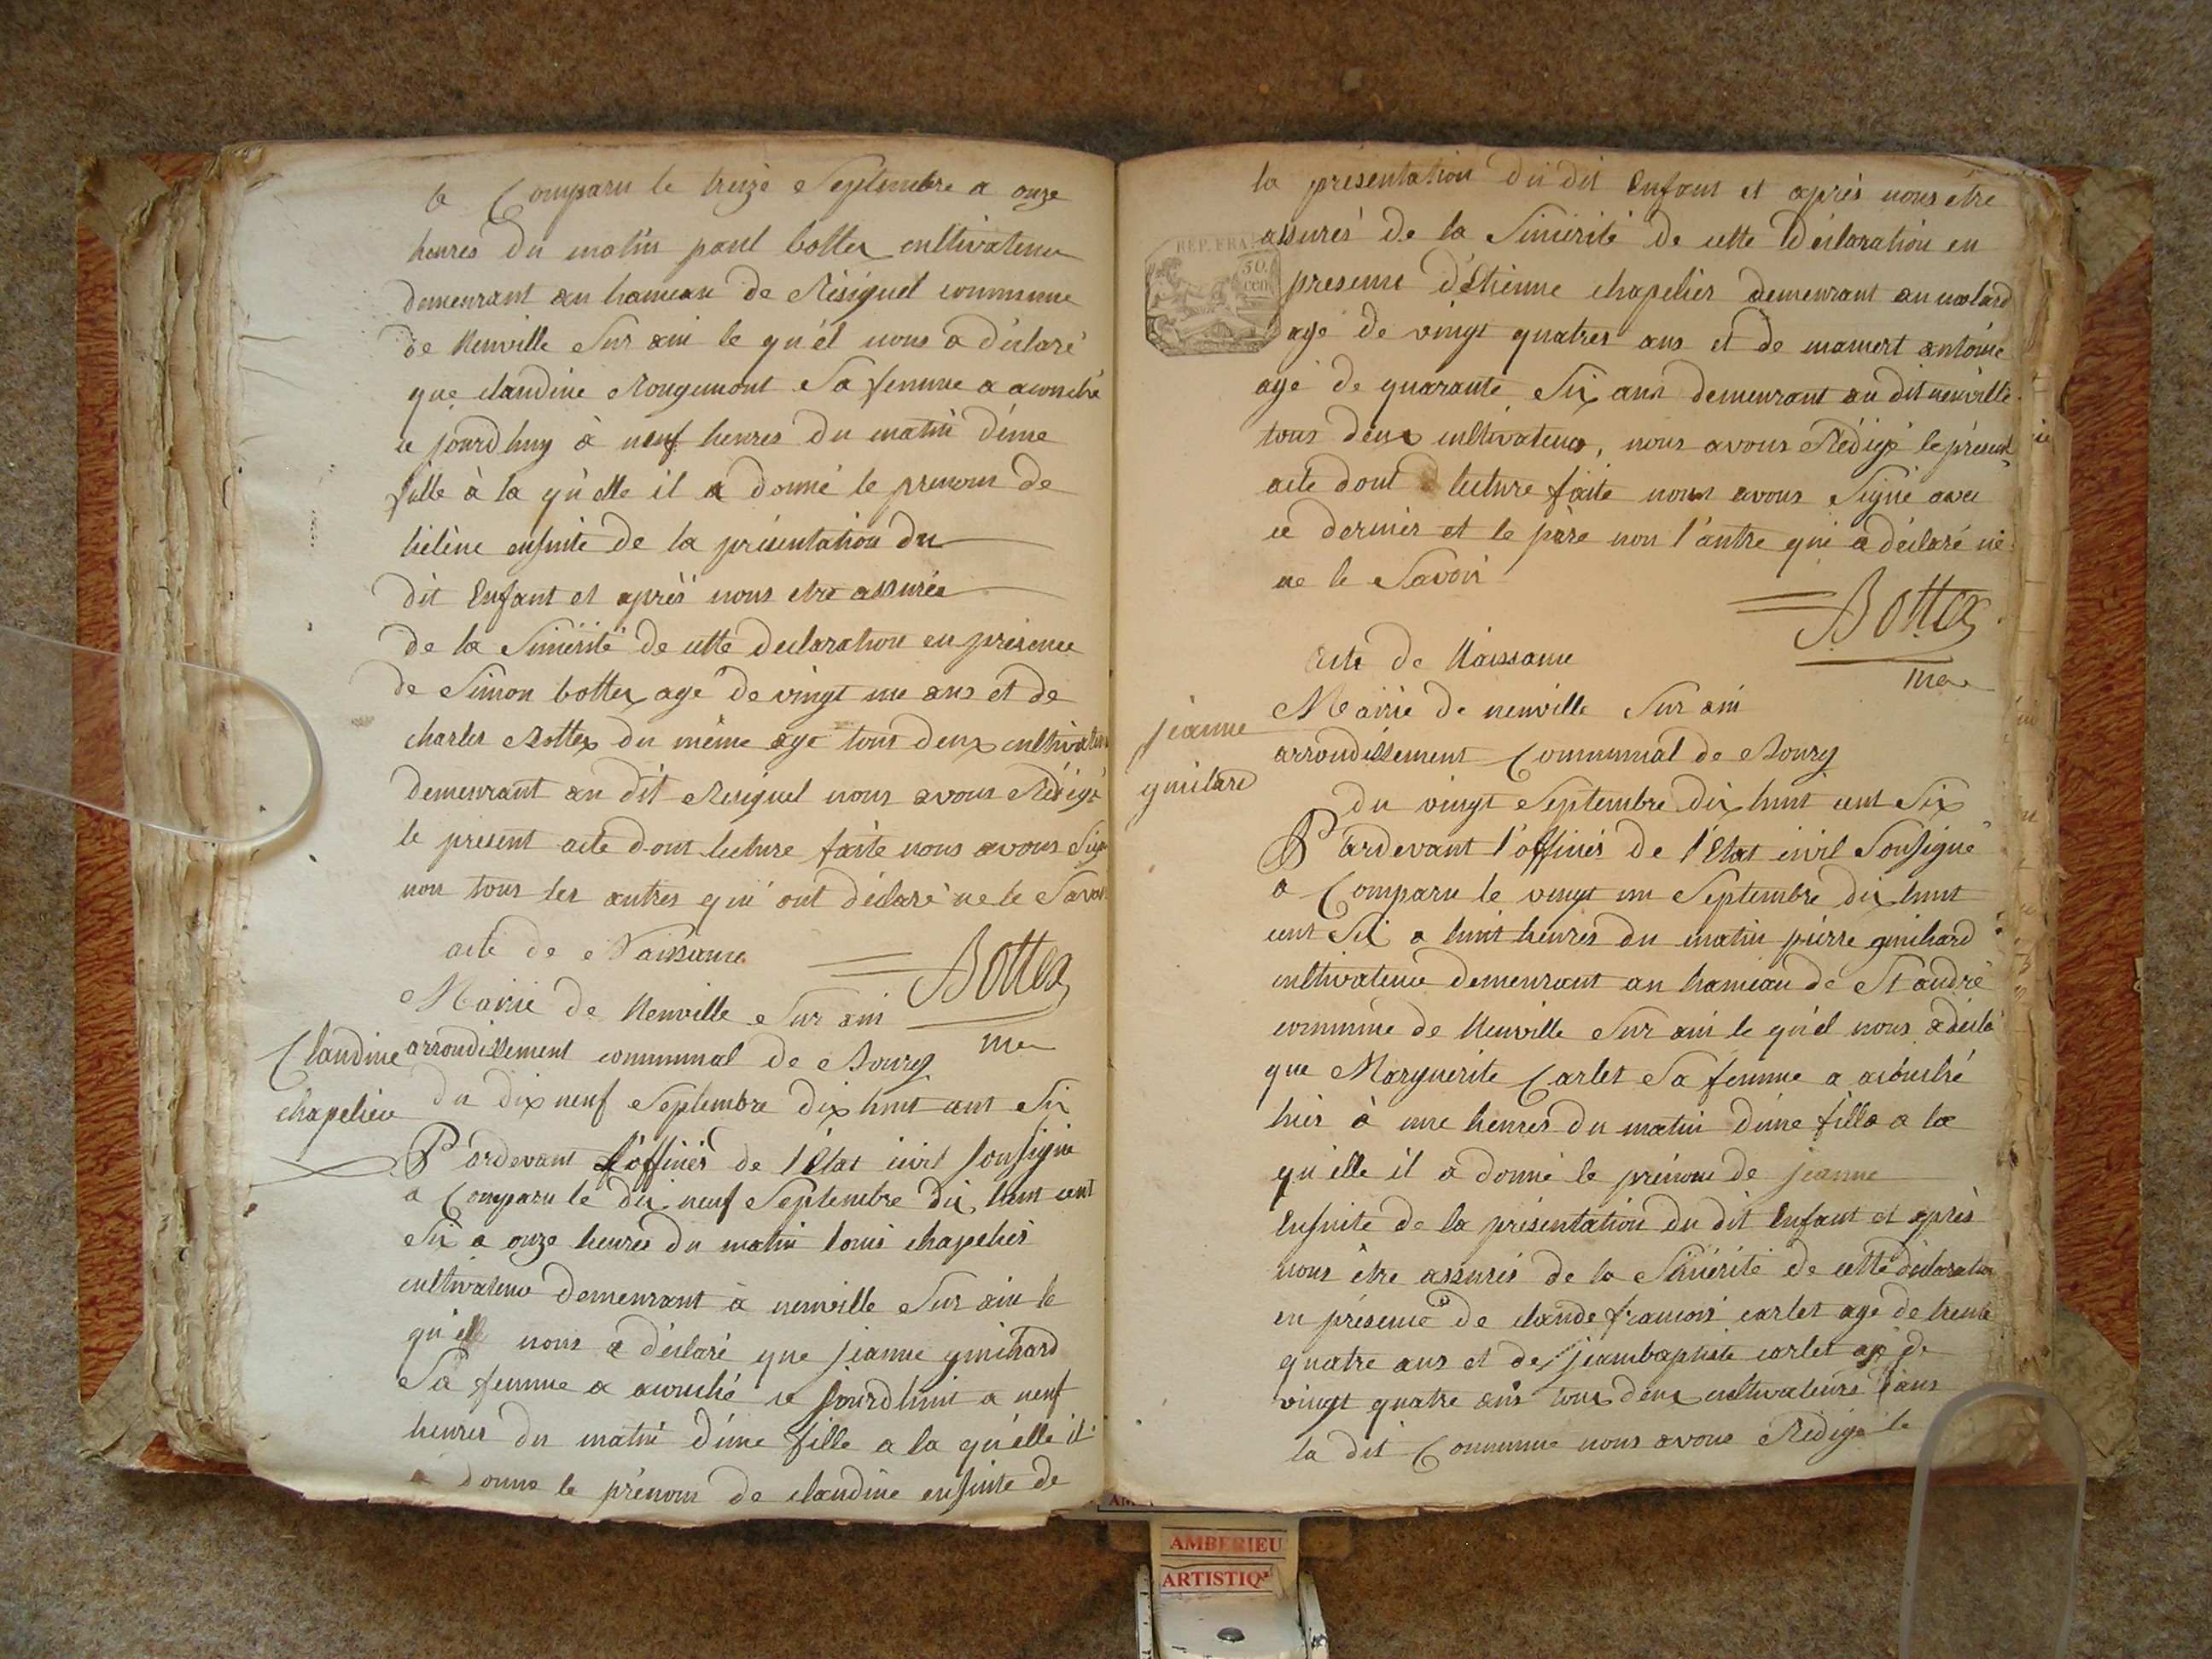 a Comparu le treize Septembre a onze
heures du matin paul bottex cultivateur
demeurant au hameau de Résignel commune
de Neuville Sur ain le qu'él nous a déclaré
que claudine Rougemont Sa femme a acouché
ce jourd huy à neuf heures du matin d'une
fille à la qu'elle il a donné le prenom de
hélène ensuite de la présentation du
dit Enfant et aprés nous etre assurée
de la Sincérité de cette declaration en présence
de Simon bottex agé de vingt un ans et de
charles Bottex du même age tous deux cultivateurs
demeurant au dit Resignel nous avons Rédigé
le present acte dont lecture faite nous avons Signé
non tous les autres qui ont déclaré ne le Savoir
Bottex
me
acte de Naissance
Mairie de Neuville Sur ain
arrondissement communal de Bourg
Claudine
chapelier
du dix neuf Septembre dix huit cent Six
Pardevant l'officier de l'état civil Sousigné
a Comparu le dix neuf Septembre dix huit cent
Six a onze heures du matin louis chapelier
cultivateur demeurant à neuville Sur ain le
qu'él nous a déclaré que jeanne guichard
Sa femme a acouché ce jourdhuit a neuf
heures du matin d'une fille a la qu'élle il
a donné le prénom de claudine ensuite de
la présentation du dit Enfant et aprés nous etre
assurés de la Sincérité de cette déclaration en
REP. FRA
50.
cen
presence d'Etienne chapelier demeurant au molard
agé de vingt quatres ans et de mamert antoine
agé de quarante Six ans demeurant au dit neuville
tous deux cultivateurs, nous avons Rédigé le présent
acte dont lecture faite nous avons Signé avec
ce dernier et le père non l'autre qui a déclaré ne
ne le Savoir
Bottex
me
acte de Naissance
Mairie de neuville Sur ain
jeanne
guichard
arrondissement Communal de Bourg
du vingt Septembre dix huit cent Six
Pardevant l'officier de l'état civil Sousigné
a Comparu le vingt un Septembre dix huit
cent Six a huit heures du matin pierre guichard
cultivateur demeurant au hameau de St andré
commune de Neuville Sur ain le qu'el nous a décla
que Marguerite Carlet Sa femme a acouché
hier à une heures du matin d'une fille a la
qu'elle il a donné le prénom de jeanne
Ensuite de la présentation du dit Enfant et aprés
nous être assurés de la Sincérité de cette déclaration
en présence de claude francois carlet agé de trente
quatre ans et de jeanbaptiste carlet agé de
vingt quatre ans tous deux cultivateurs dans
la dit Commune nous avons Rédigé le
AMBERIEU
ARTISTIQ